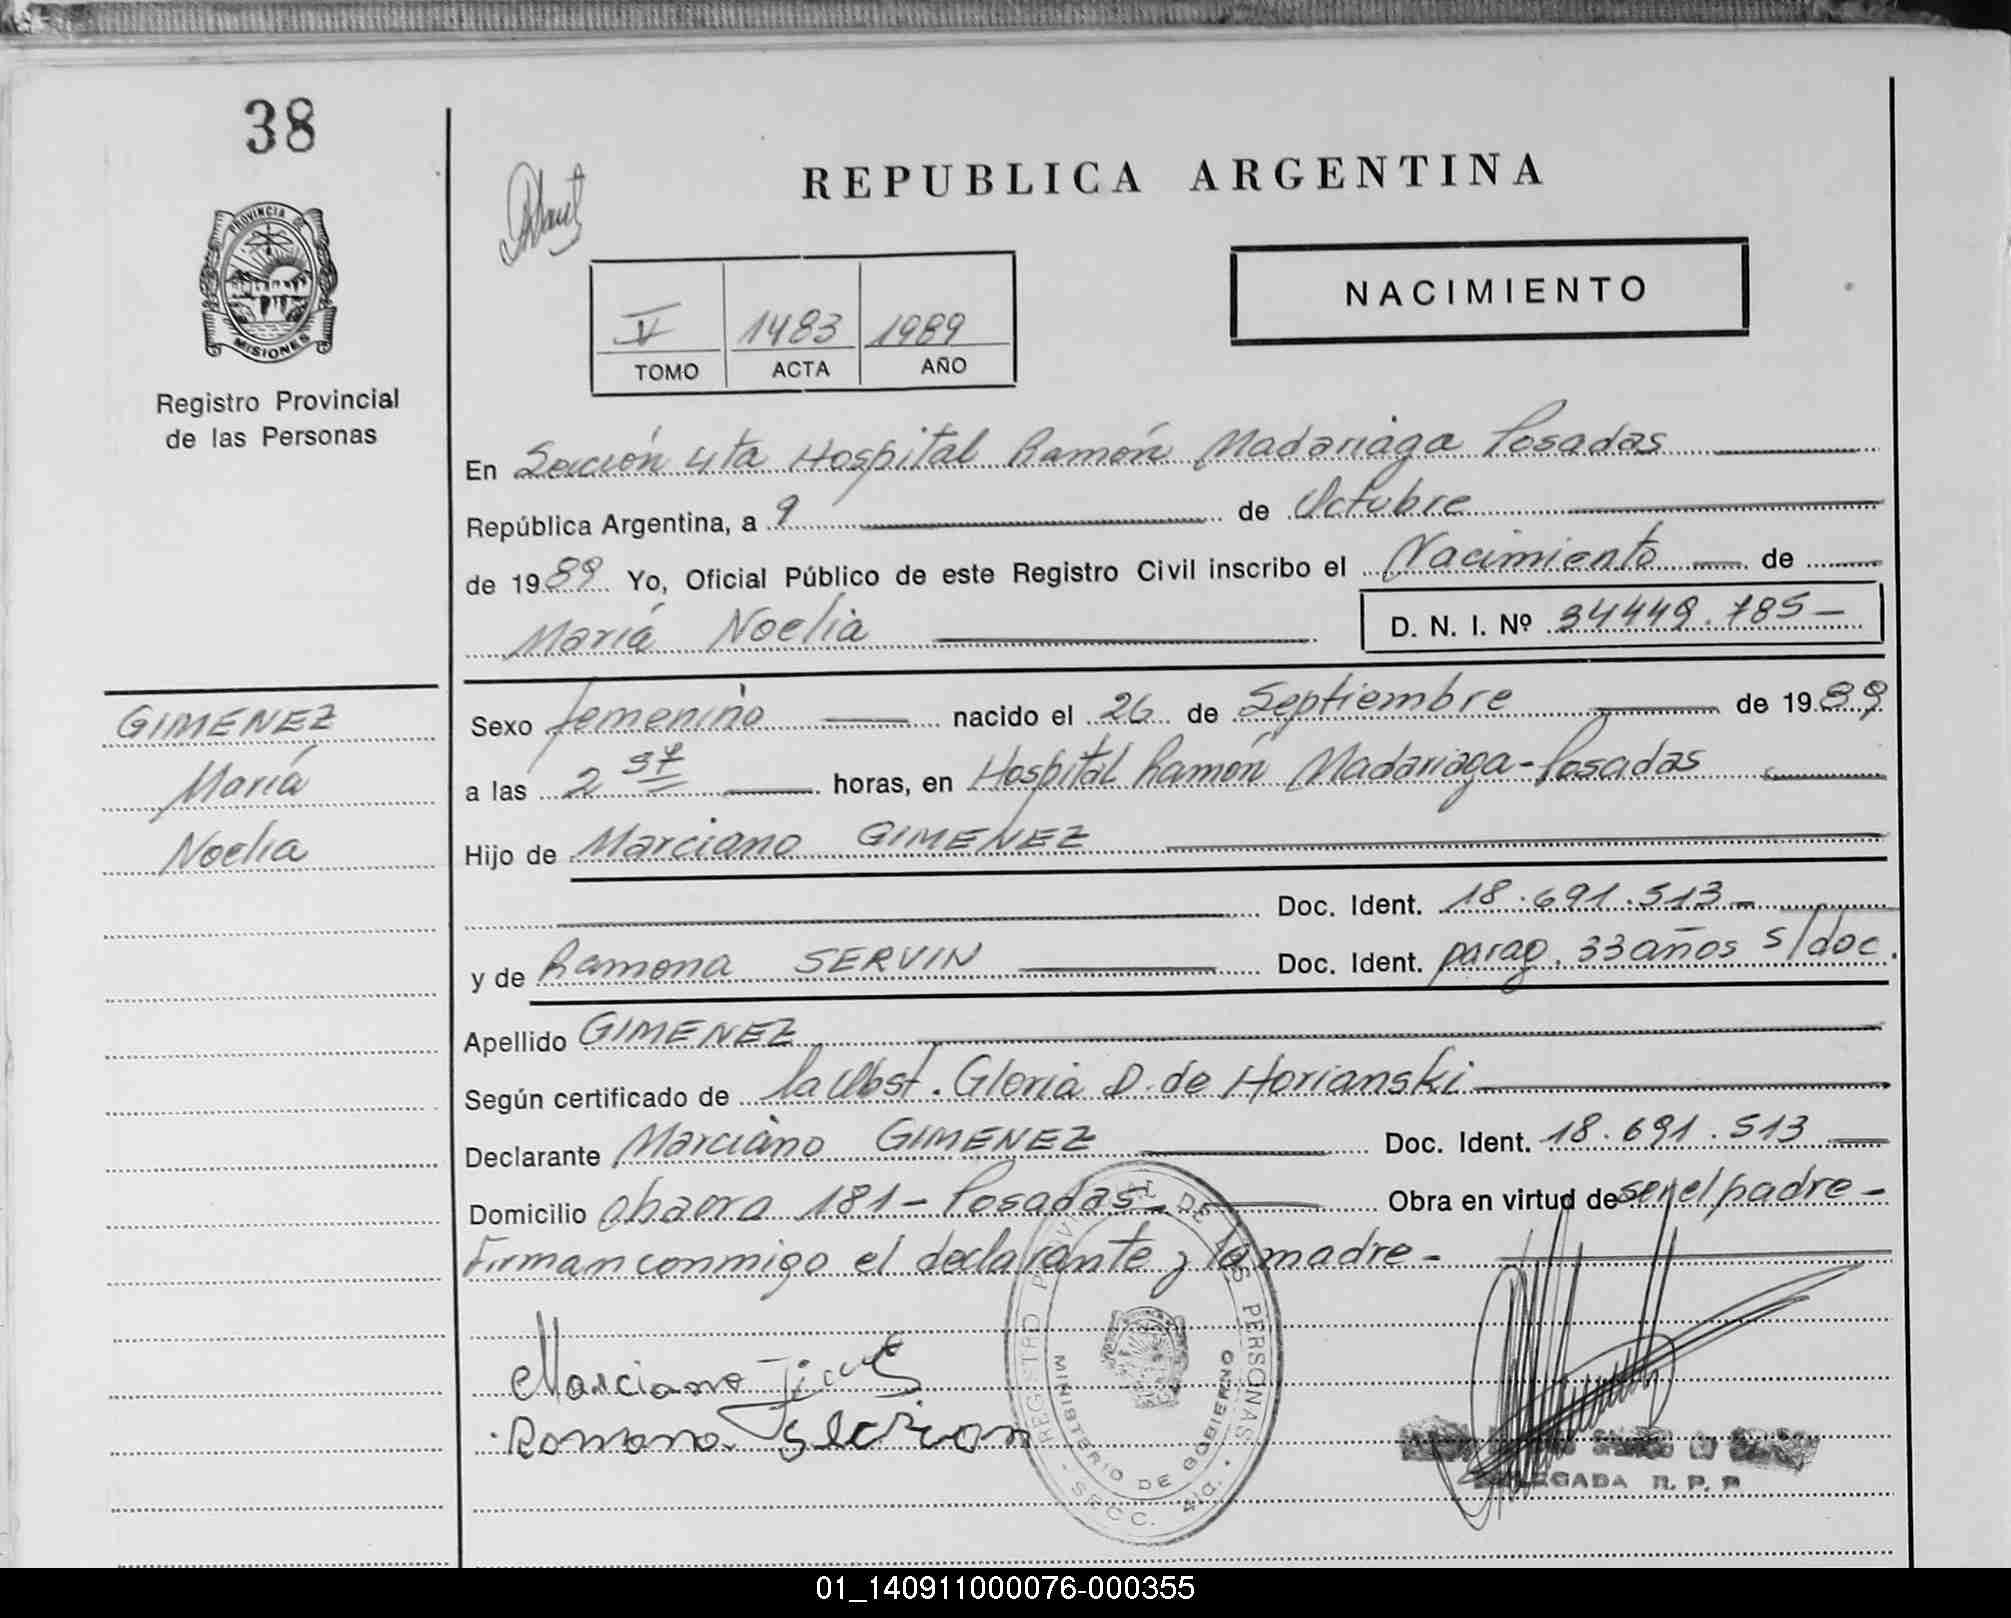 38
REPUBLICA ARGENTINA
PROVINCIA DE
MISIONES
NACIMIENTO
V 1483 1989
TOMO ACTA AÑO
Registro Provincial
de las Personas
En Sección 4ta Hospital Ramón Madariaga Posadas
República Argentina, a 9 de Octubre
de 1989 Yo, Oficial Público de este Registro Civil inscribo el Nacimiento de
María Noelia D. N. I. Nº 34449.785-
GIMENEZ
María
Noelia
Sexo femenino nacido el 26 de Septiembre de 1989
a las 2 37 horas, en Hospital Ramón Madariaga-Posadas
Hijo de Marciano GIMENEZ
Doc. Ident. 18.691.513-
y de Ramona SERVIN Doc. Ident. parag. 33 años s/doc.
Apellido GIMENEZ
Según certificado de la Obst. Gloria D. de Horianski
Declarante Marciano GIMENEZ Doc. Ident. 18.691.513
Domicilio Chacra 181-Posadas- Obra en virtud de ser el padre-
Firman conmigo el declarante y la madre-
Marciano
Ramona
REGISTRO PROVINCIAL DE LAS PERSONAS
MINISTERIO DE GOBIERNO
SECC. 4ta.
DELEGADA R. P. P.
01_140911000076-000355